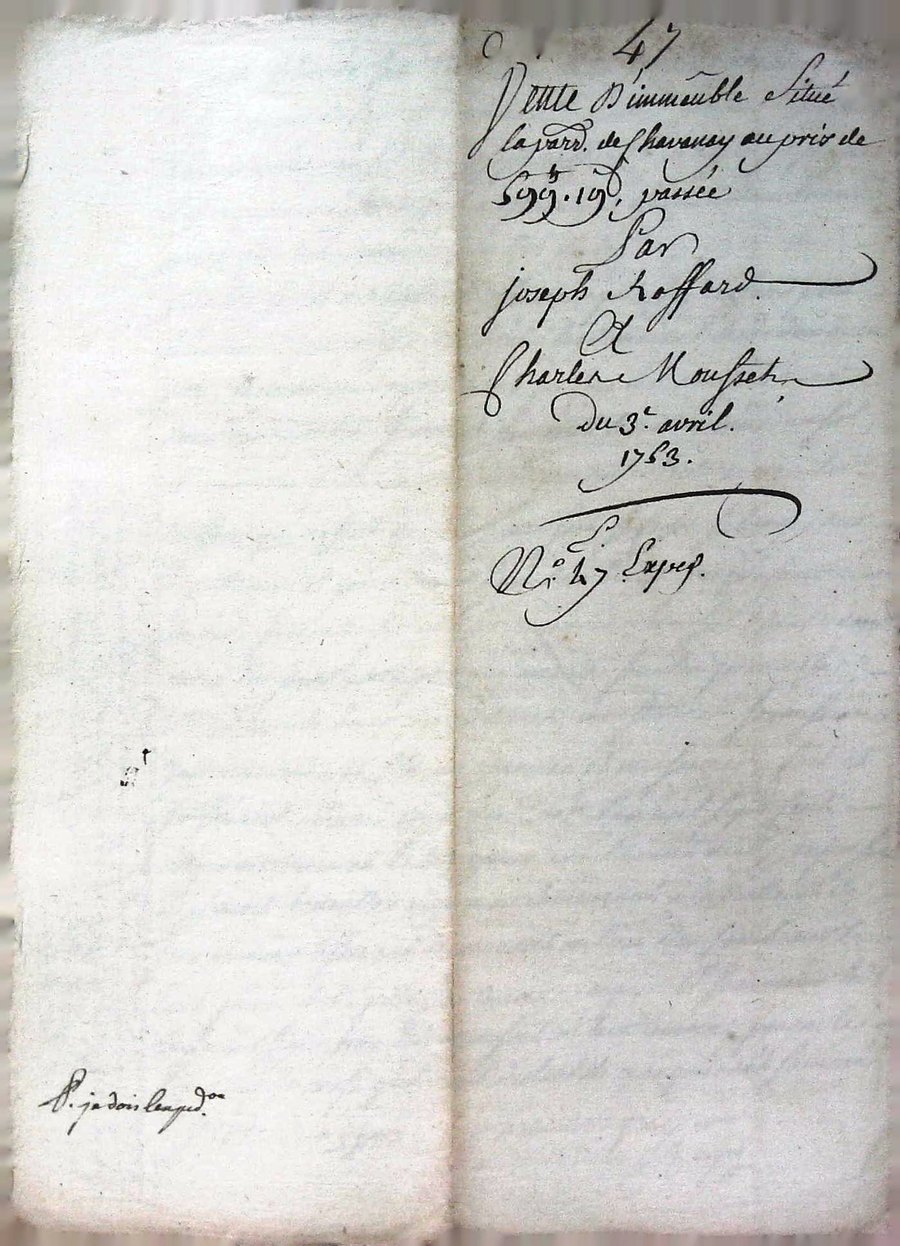 47
Vente D'immeuble Situé
la parr. de Chavanay au prix de
599.tt 19.s, passée
Par
joseph Roffard
A
Charles Mousset
Du 3.e avril.
1753.
N.o 47. Exped.
P. je dois lexped.on